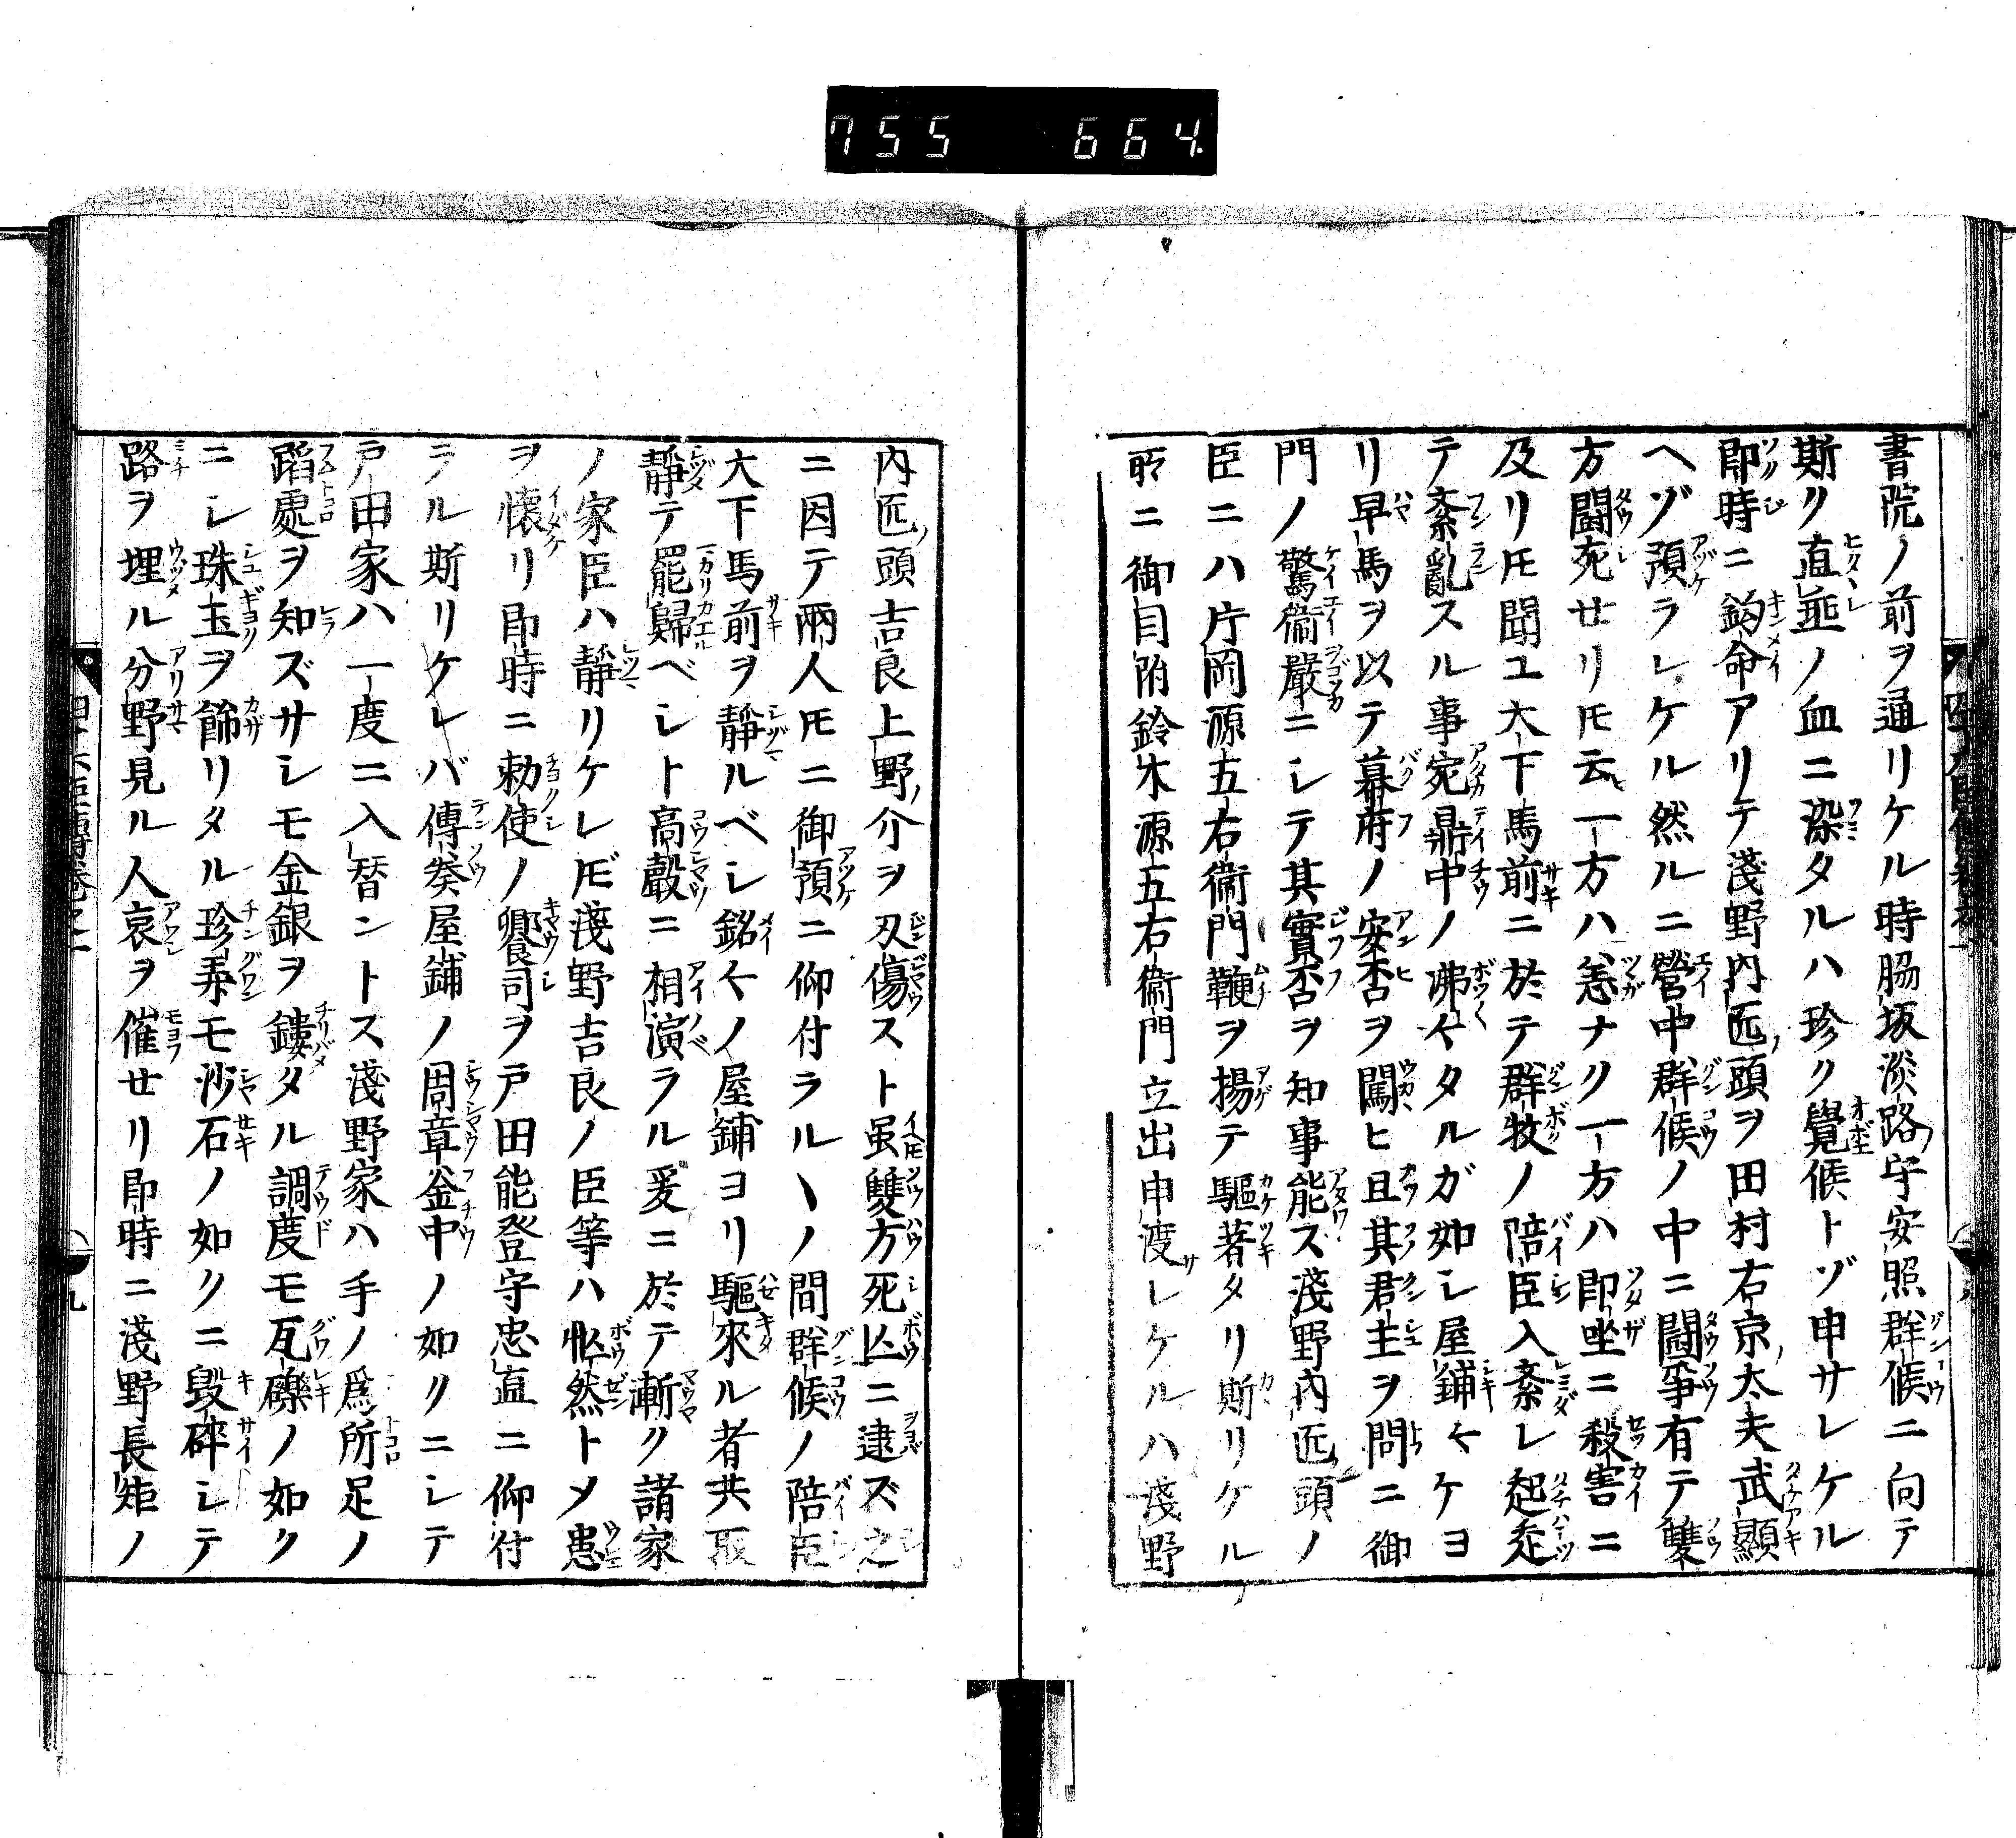 755 664
書院ノ前ヲ通リケル時脇坂淡路守安照群候ニ向テ
斯ク直垂ノ血ニ染タルハ珍ク覺候トゾ申サレケル
即時ニ鈞命アリテ淺野内匠頭ヲ田村右京太夫武顯
ヘゾ預ラレケル然ルニ營中群候ノ中ニ鬪爭有テ雙
方鬪死せリ𪜈云一方ハ恙ナク一方ハ即坐ニ殺害ニ
及リ𪜈聞ユ大下馬前ニ於テ群牧ノ陪臣入紊レ起走
テ紊亂スル事宛鼎中ノ沸々タルガ如シ屋鋪々々ヨ
リ早馬ヲ以テ幕府ノ安否ヲ闖ヒ且其君主ヲ問ニ御
門ノ驚衞嚴ニシテ其實否ヲ知事能ス淺野内匠頭ノ
臣ニハ片岡源五右衞門鞭ヲ揚テ驅著タリ斯リケル
所ニ御目附鈴木源五右衞門立出申渡サレケルハ淺野
内匠頭吉良上野介ヲ刃傷スト虽雙方死亡ニ逮ズ之
ニ因テ兩人𪜈ニ御預ニ仰付ラルヽノ間群候ノ陪臣
大下馬前ヲ靜ルベシ銘々ノ屋鋪ヨリ驅來ル者共取
靜テ罷歸ベシト高聲ニ相演ラル爰ニ於テ漸ク諸家
ノ家臣ハ靜リケレ𪜈淺野吉良ノ臣等ハ忙然トメ患
ヲ懷リ即時ニ勅使ノ饗司ヲ戸田能登守忠直ニ仰付
ラル斯リケレバ傳奏屋鋪ノ周章釜中ノ如クニシテ
戸田家ハ一度ニ入替ントス淺野家ハ手ノ爲所足ノ
蹈處ヲ知ズサシモ金銀ヲ鏤タル調度モ瓦礫ノ如ク
ニシ珠玉ヲ餝リタル珍弄モ沙石ノ如クニ毀碎シテ
路ヲ埋ル分野見ル人哀ヲ催せリ即時ニ淺野長矩ノ
九